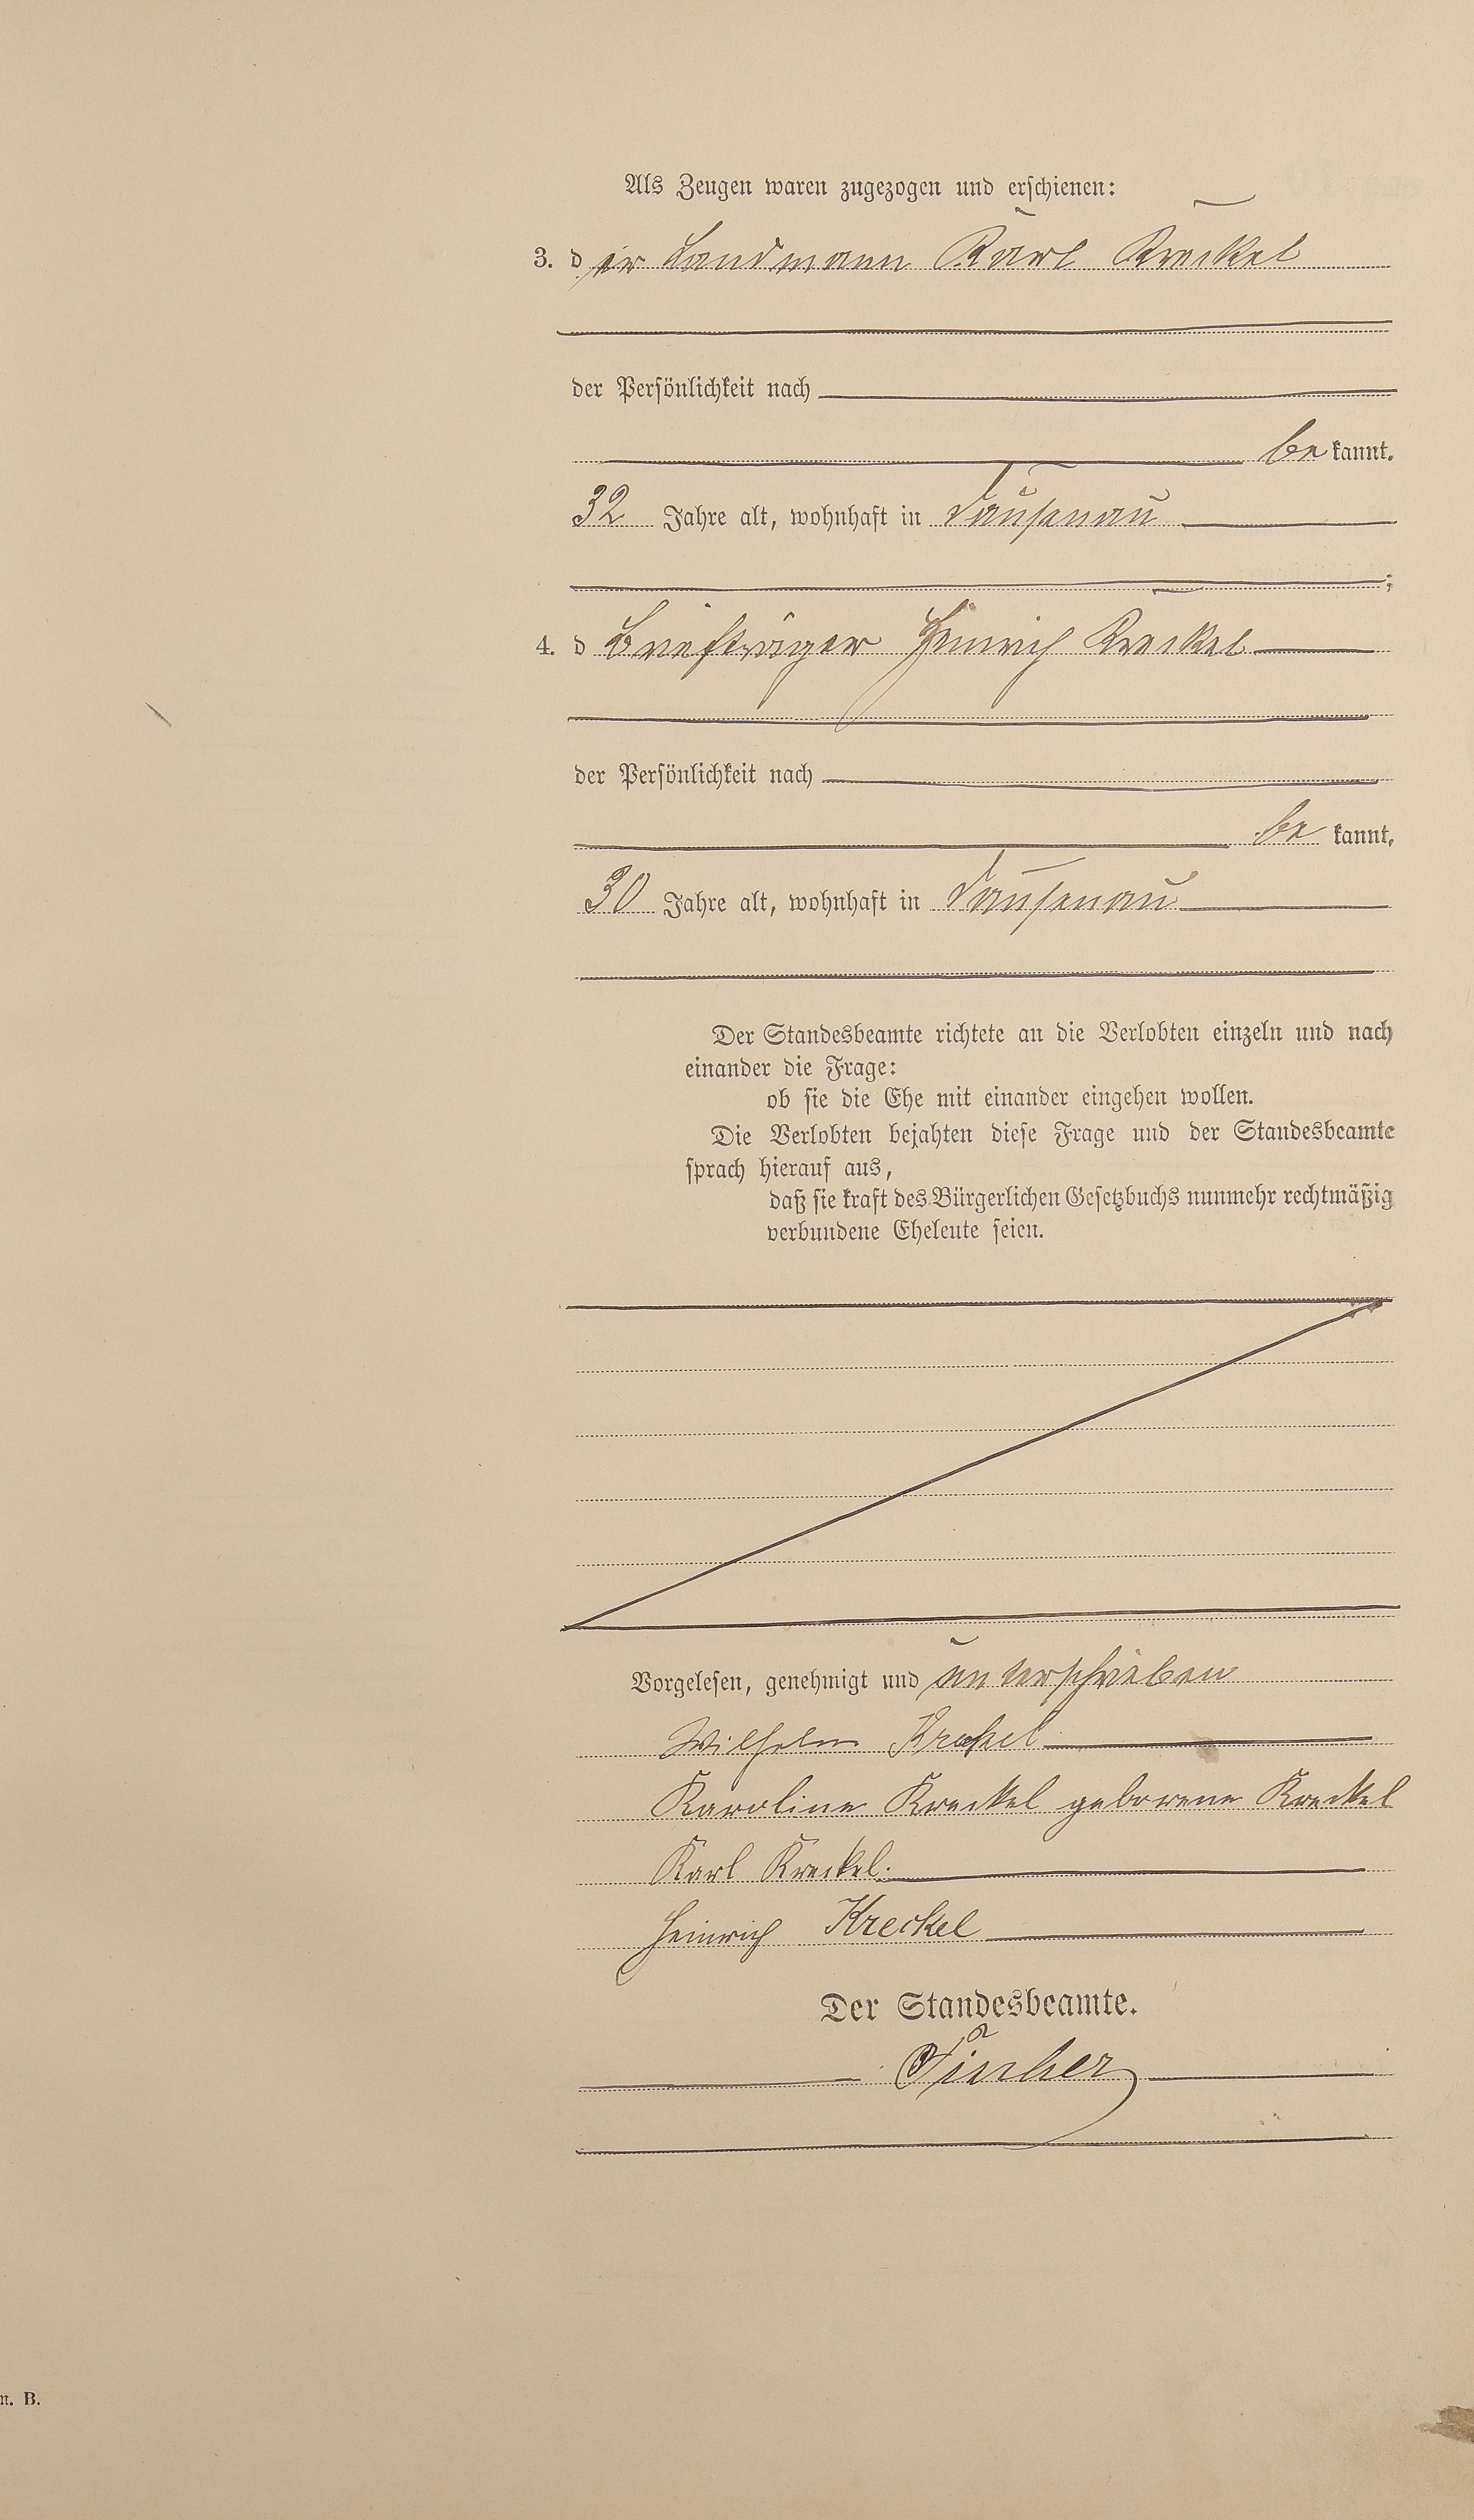 Als Zeugen waren zugezogen und erschienen:
3. der Landmann Karl Kreckel
der Persönlichkeit nach
bekannt,
32 Jahre alt, wohnhaft in Dausenau
;
4. d Briefträger Heinrich Kreckel
der Persönlichkeit nach
be kannt,
30 Jahre alt, wohnhaft in Dausenau
Der Standesbeamte richtete an die Verlobten einzeln und nach
einander die Frage:
ob sie die Ehe mit einander eingehen wollen.
Die Verlobten bejahten diese Frage und der Standesbeamte
sprach hierauf aus,
daß sie kraft des Bürgerlichen Gesetzbuchs nunmehr rechtmäßig
verbundene Eheleute seien.
Vorgelesen, genehmigt und unterschrieben
Wilhelm Kreckel
Karoline Kreckel geborene Kreckel
Karl Kreckel.
Heinrich Kreckel
Der Standesbeamte.
n. B.